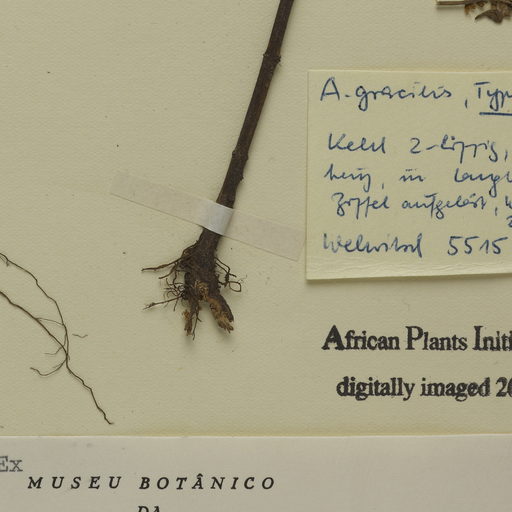 A. gracilis, Typ
Kelch 2-lippig,
in lang
Zipfel aufgelöst,
Welwitsch 5515
African Plants Initi
digitally imaged 20
Ex
MUSEU BOTÂNICO
DA